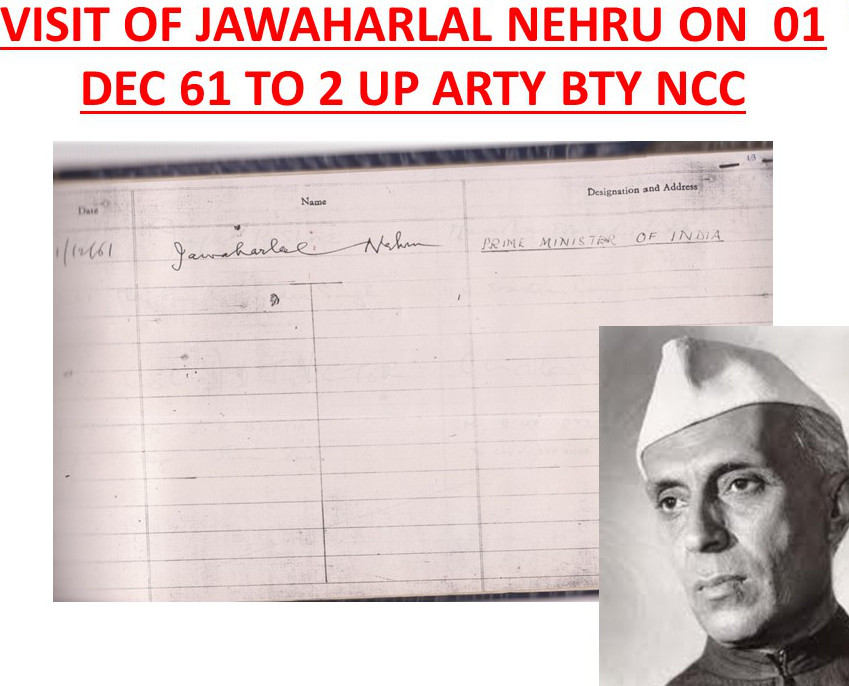 VISIT OF JAWAHARLAL NEHRU ON 01
DEC 61 TO 2 UP ARTY BTY NCC
Date Name Designation and Address
1/12/61 Jawaharlal Nehru PRIME MINISTER OF INDIA